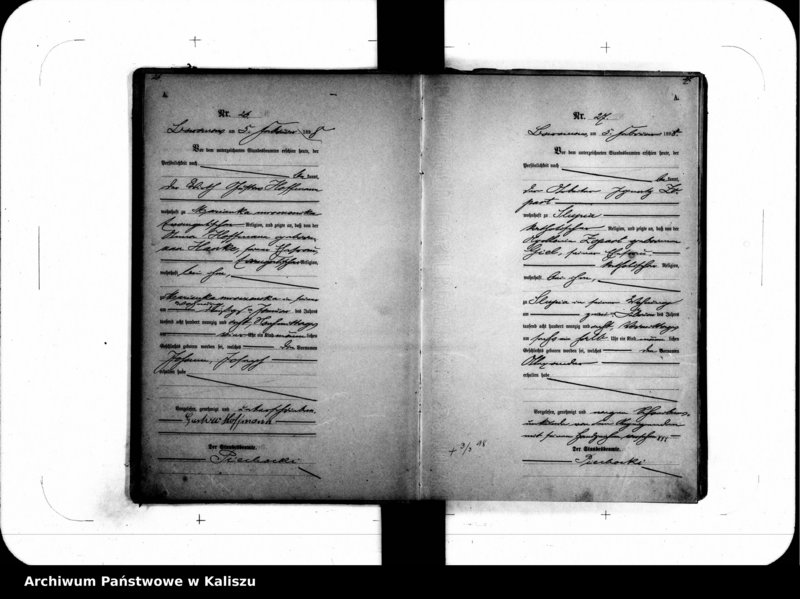 A.
Nr. 26
am 5. Februar 1898
Vor dem unterzeichneten Standesbeamten erschien heute, der
Persönlichkeit nach
be kannt,
der Wirth Gustav Hoffmann
wohnhaft zu Marienka mroczenska
evangelischer Religion, und zeigte an, daß von der
Hoffmann geborenen
seiner Ehefrau,
evangelischer Religion,
wohnhaft bei ihm,
zu Marienka mroczenska in seiner
Wohnung
am Januar des Jahres
tausend acht hundert neunzig und acht, Nachmittags
um Uhr ein Kind männlichen
Geschlechts geboren worden sei, welches den Vornamen
Johann Joseph
erhalten habe
Vorgelesen, genehmigt und unterschrieben.
Gustav Hoffmann
Der Standesbeamte.
Piechocki
A.
Nr. 27.
am 5. Februar 1898.
Vor dem unterzeichneten Standesbeamten erschien heute, der
Persönlichkeit nach
be kannt,
der Arbeiter Ignatz
wohnhaft zu Slupia
katholischer Religion, und zeigte an, daß von der
geborenen
seiner Ehefrau
katholischer Religion,
wohnhaft bei ihm,
zu Slupia in seiner Wohnung
am des Jahres
tausend acht hundert neunzig und acht, Vormittags
um sechs ein halb Uhr ein Kind männlichen
Geschlechts geboren worden sei, welches den Vornamen
Alexander
erhalten habe
Vorgelesen, genehmigt und wegen Schreibens-
unkunde von dem Anzeigenden
mit seinem Handzeichen versehen +++
Der Standesbeamte.
Piechocki
+ 3/3 98
Archiwum Państwowe w Kaliszu